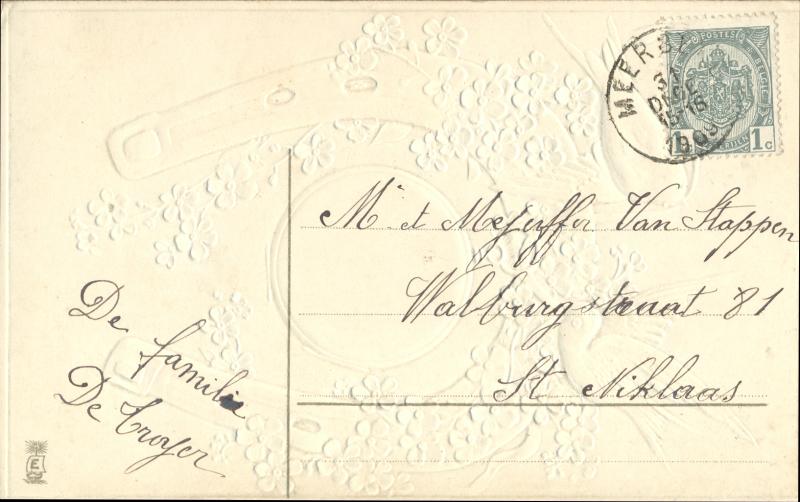 POSTES
BELGIQUE
1 1C
31
DECE
1909
Mr et Mejuffer Van Stappen
Walburgstraat 81
St Niklaas
De familie
De Troyer
E